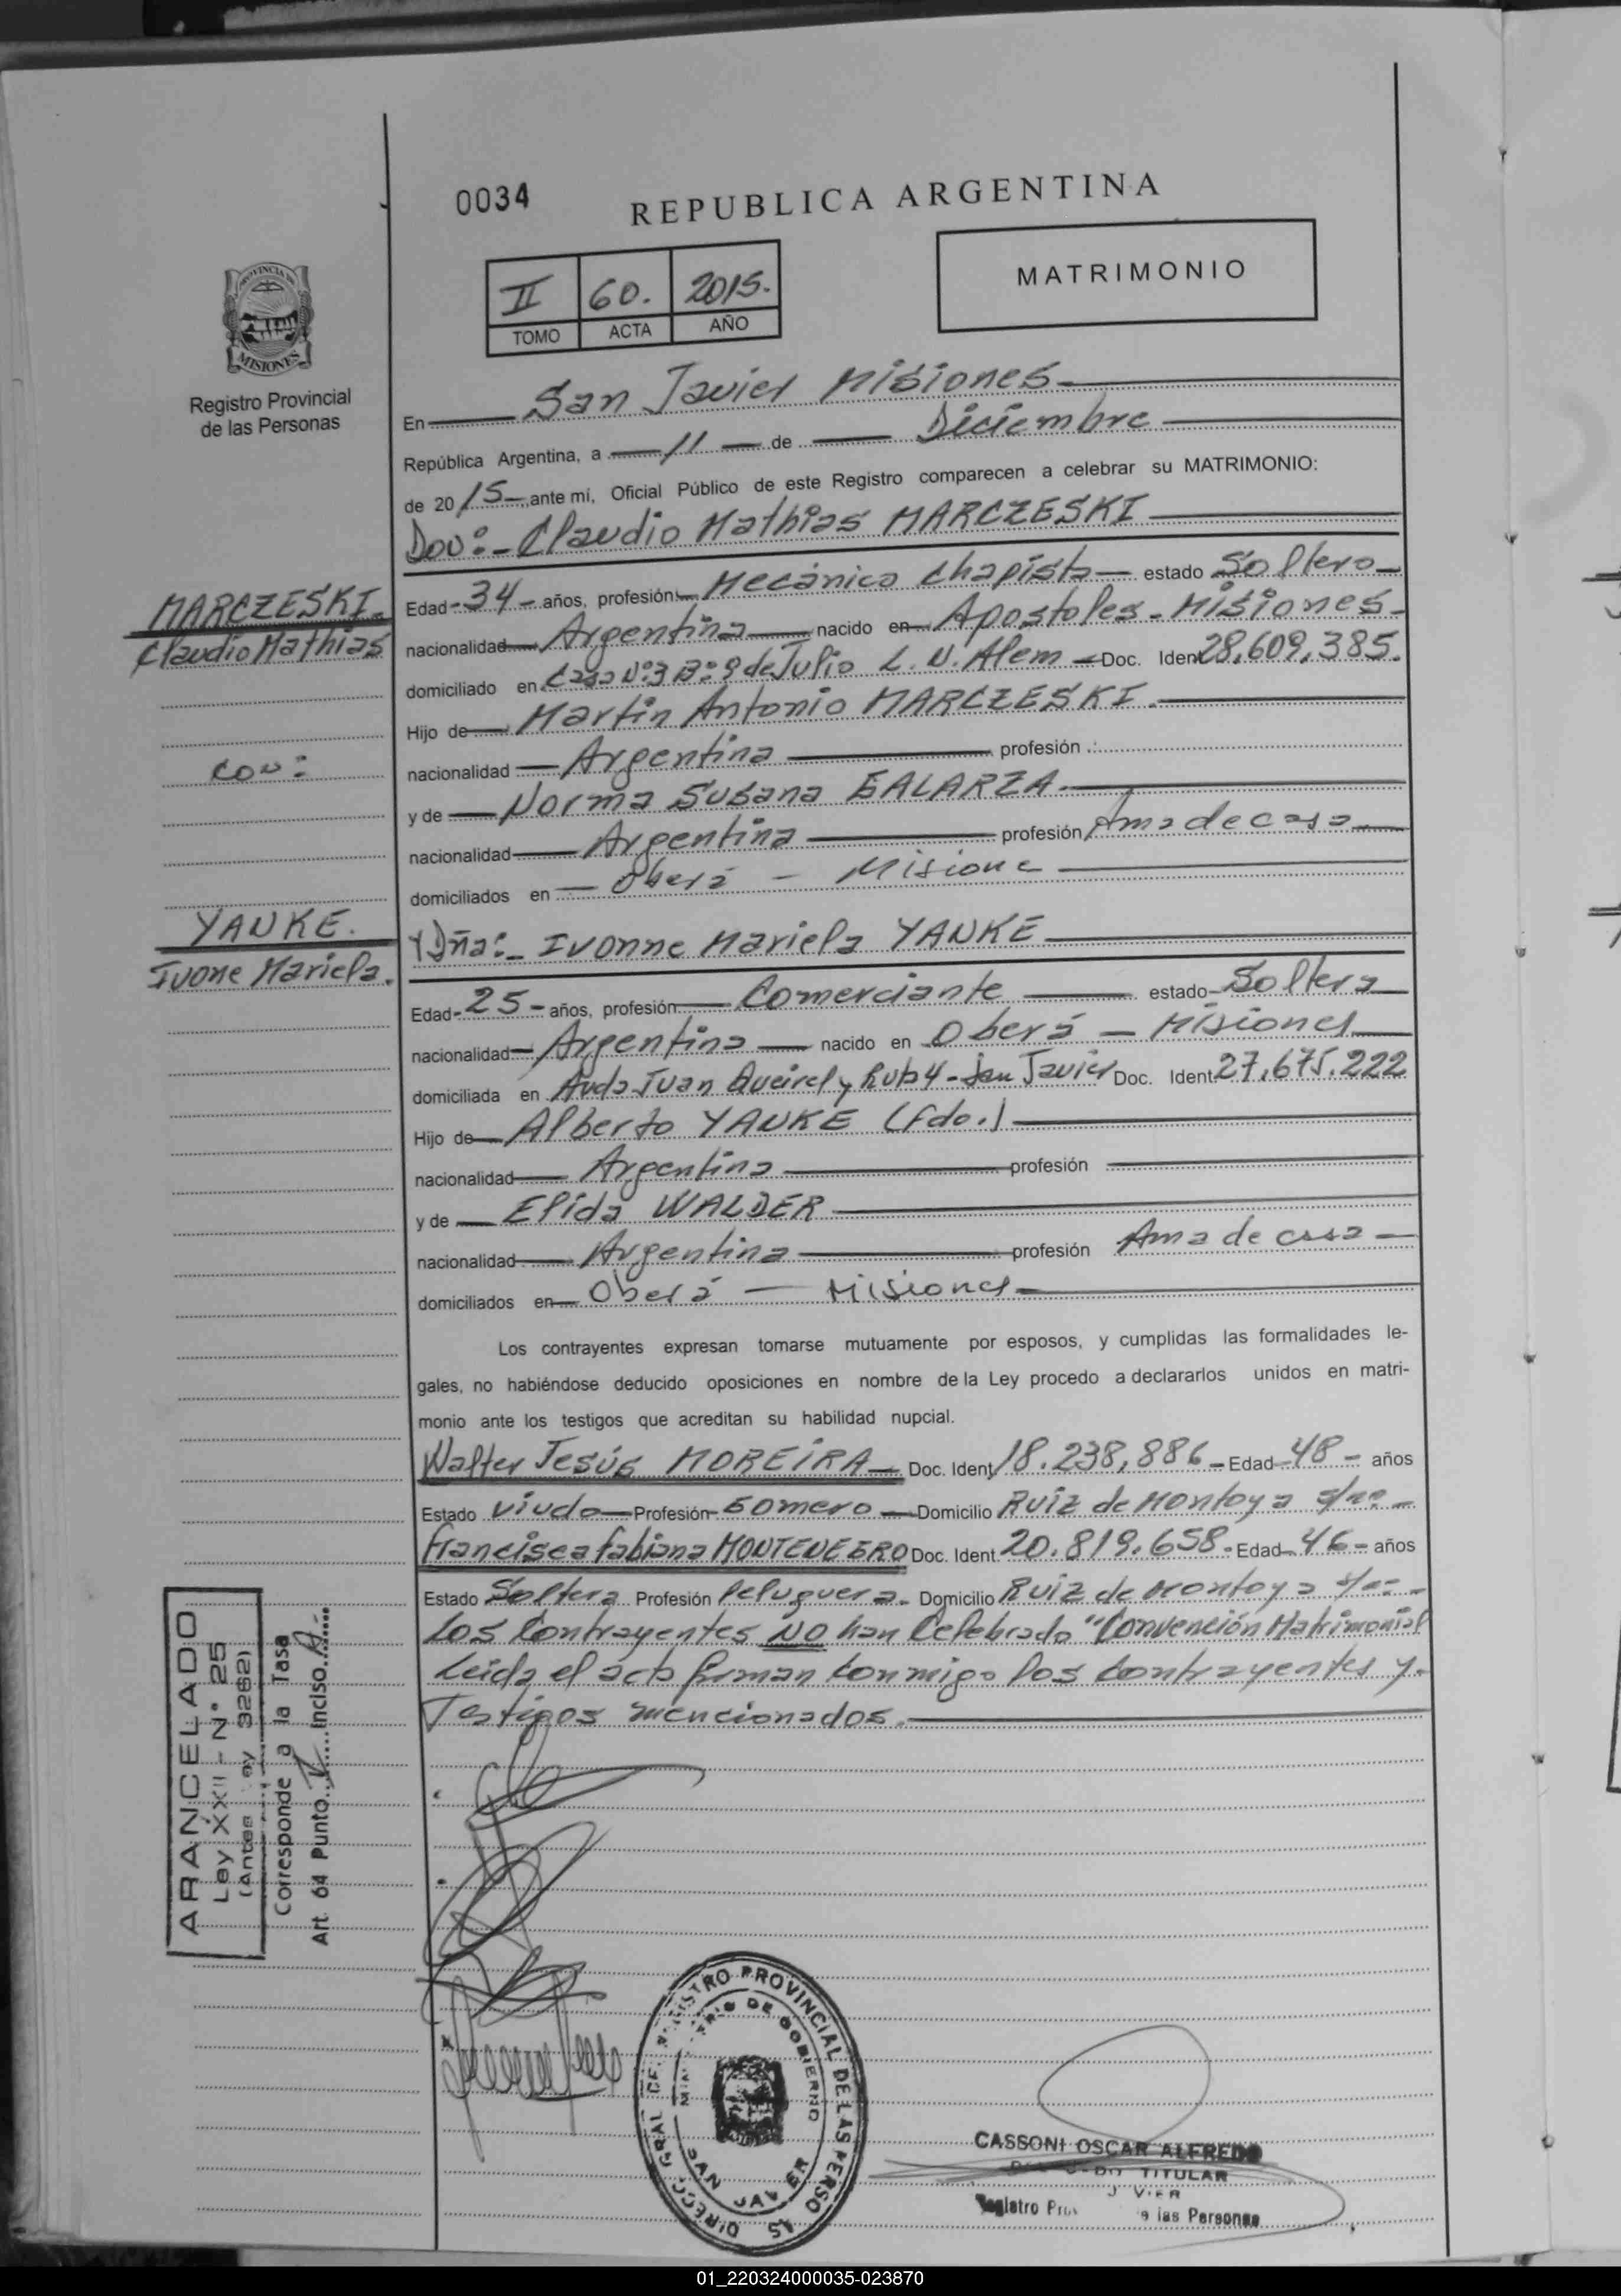 0034
REPUBLICA ARGENTINA
II 60. 2015.
TOMO ACTA AÑO
MATRIMONIO
PROVINCIA DE
MISIONES
Registro Provincial
de las Personas
En San Javier Misiones
República Argentina, a 11 de Diciembre
de 2015 ante mi, Oficial Público de este Registro comparecen a celebrar su MATRIMONIO:
Don:- Claudio Mathias MARCZESKI
MARCZESKI.
Claudio Mathias
con:
YANKE.
Ivone Mariela.
Edad-34- años, profesión Mecánico Chapista estado Soltero
nacionalidad Argentina nacido en Apostoles - Misiones-
domiciliado en Casa Nº3 Bº 9 de Julio L. N. Alem Doc. Ident 28,609,385.
Hijo de Martin Antonio MARCZESKI.
nacionalidad Argentina profesión
y de Norma Susana GALARZA.
nacionalidad Argentina profesión Ama de casa
domiciliados en Oberá - Misione
Y Dña:- Ivonne Mariela YANKE
Edad-25- años, profesión Comerciante estado Soltera
nacionalidad Argentina nacido en Oberá - Misiones
domiciliada en Avda Juan Queirel y Ruta 4 - San Javier Doc. Ident 27,675.222
Hijo de Alberto YANKE (fdo.)
nacionalidad Argentina profesión
y de Elida WALDER
nacionalidad Argentina profesión Ama de casa
domiciliados en Oberá - Misiones
Los contrayentes expresan tomarse mutuamente por esposos, y cumplidas las formalidades le-
gales, no habiéndose deducido oposiciones en nombre de la Ley procedo a declararlos unidos en matri-
monio ante los testigos que acreditan su habilidad nupcial.
Walter Jesús MOREIRA Doc. Ident 18.238,886 Edad 48 años
Estado Viudo Profesión Gomero Domicilio Ruiz de Montoya s/nº
Francisca Fabiana MONTENEGRO Doc. Ident. 20.819.658. Edad 46 años
Estado Soltera Profesión Peluquera. Domicilio Ruiz de Montoya s/nº
Los Contrayentes NO han Celebrado "Convención Matrimonial
Leida el acta firman conmigo los contrayentes y
Testigos mencionados.
ARANCELADO
Ley XXII - Nº 25
(Antes Ley 3262)
Corresponde a la Tasa
Art. 64 Punto V Inciso A
DIRECC. GRAL. DEL REGISTRO PROVINCIAL DE LAS PERSONAS
MINISTERIO DE GOBIERNO
SAN JAVIER
CASSONI OSCAR ALFREDO
TITULAR
Registro las Personas
01_220324000035-023870